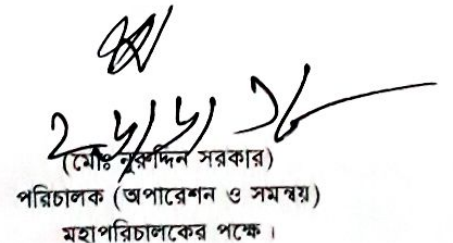 (মোঃ নূরুদ্দিন সরকার)
পরিচালক (অপারেশন ও সমন্বয়)
মহাপরিচালকের পক্ষে।